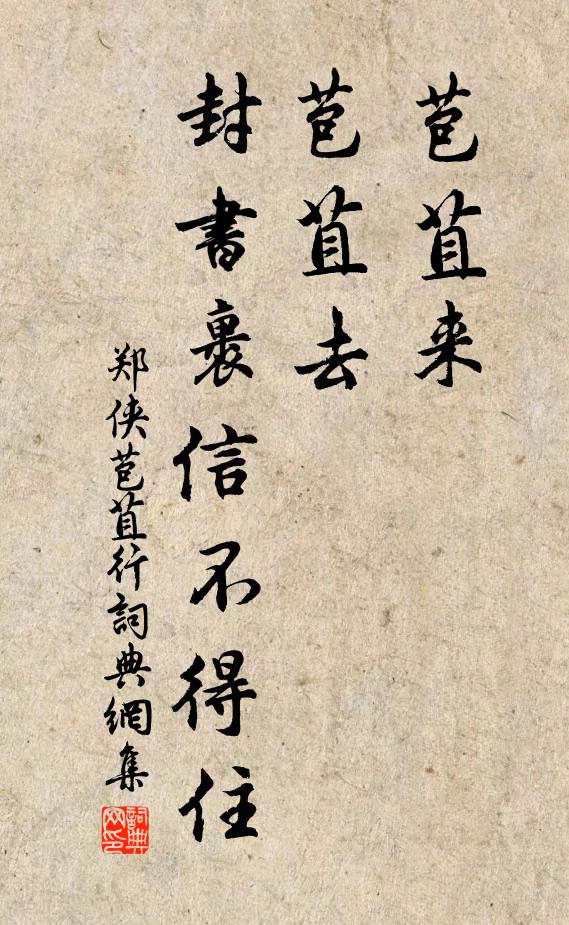 苞苴来
苞苴去
封書裹信不得住
郑侠苞苴行詞典網集
詞典
网印